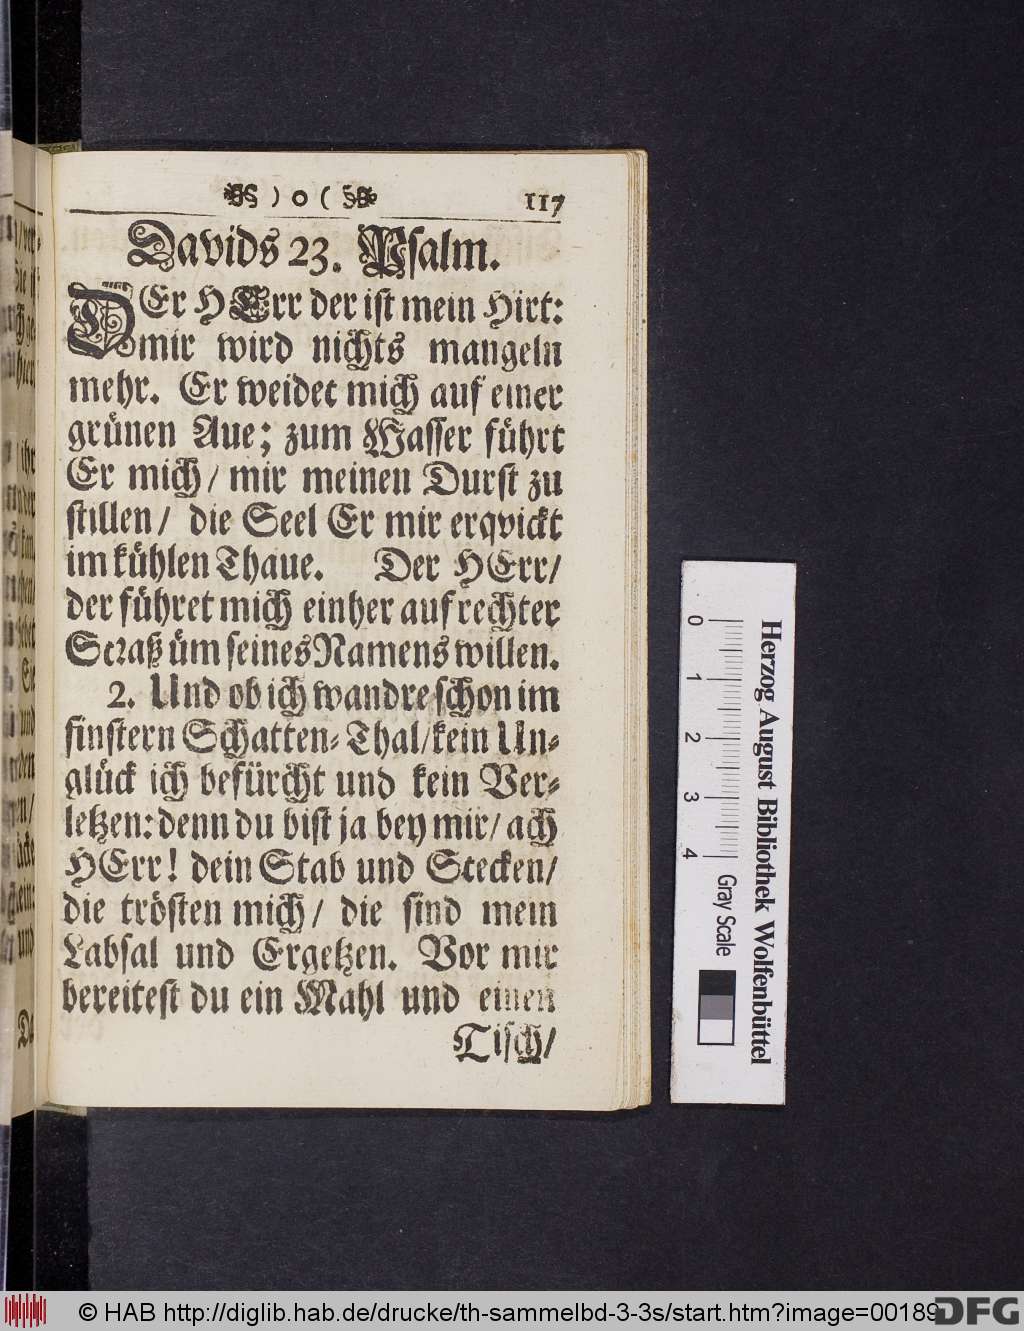 ) o ( 117
Davids 23. Psalm.
DEr HErr der ist mein Hirt:
mir wird nichts mangeln
mehr. Er weidet mich auf einer
grünen Aue; zum Wasser führt
Er mich/ mir meinen Durst zu
stillen/ die Seel Er mir erqvickt
im kühlen Thaue. Der HErr/
der führet mich einher auf rechter
Straß üm seines Namens willen.
2. Und ob ich wandre schon im
finstern Schatten-Thal/ kein Un-
glück ich befürcht und kein Ver-
letzen: denn du bist ja bey mir/ ach
HErr! dein Stab und Stecken/
die trösten mich/ die sind mein
Labsal und Ergetzen. Vor mir
bereitest du ein Mahl und einen
Tisch/
0 1 2 3 4 Gray Scale
Herzog August Bibliothek Wolfenbüttel
© HAB http://diglib.hab.de/drucke/th-sammelbd-3-3s/start.htm?image=00189
DFG